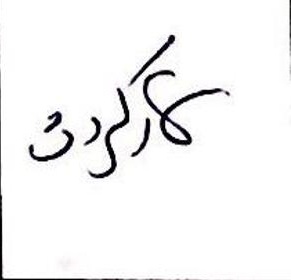 کارکردن